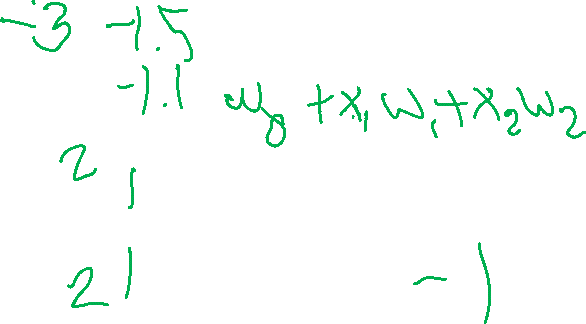 -3 -1.5
-1.1 w₀ + x₁ w₁ + x₂ w₂
2 1
2 1 -1